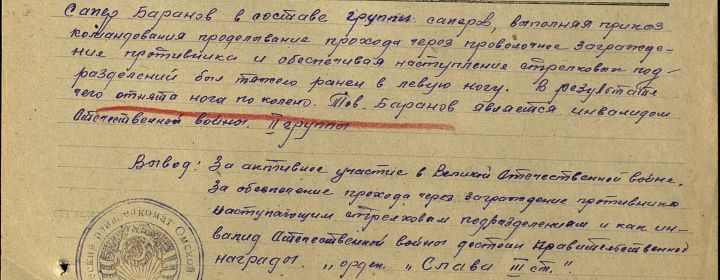 Сапер Баранов в составе группы саперов, выполняя приказ
командования проделывание прохода через проволочное загражде-
ние противника и обеспечивая наступление стрелковых под-
разделений был тяжело ранен в левую ногу. В результате
чего отнята нога по колено. Тов. Баранов является инвалидом
Отечественной войны. II группы
Вывод: За активное участие в Великой Отечественной войне.
За обеспечение прохода через заграждение противника
наступающим стрелковым подразделениям и как ин-
валид Отечественной войны достоин правительственной
награды. „орден. „Слава III ст."
военкомат Омской